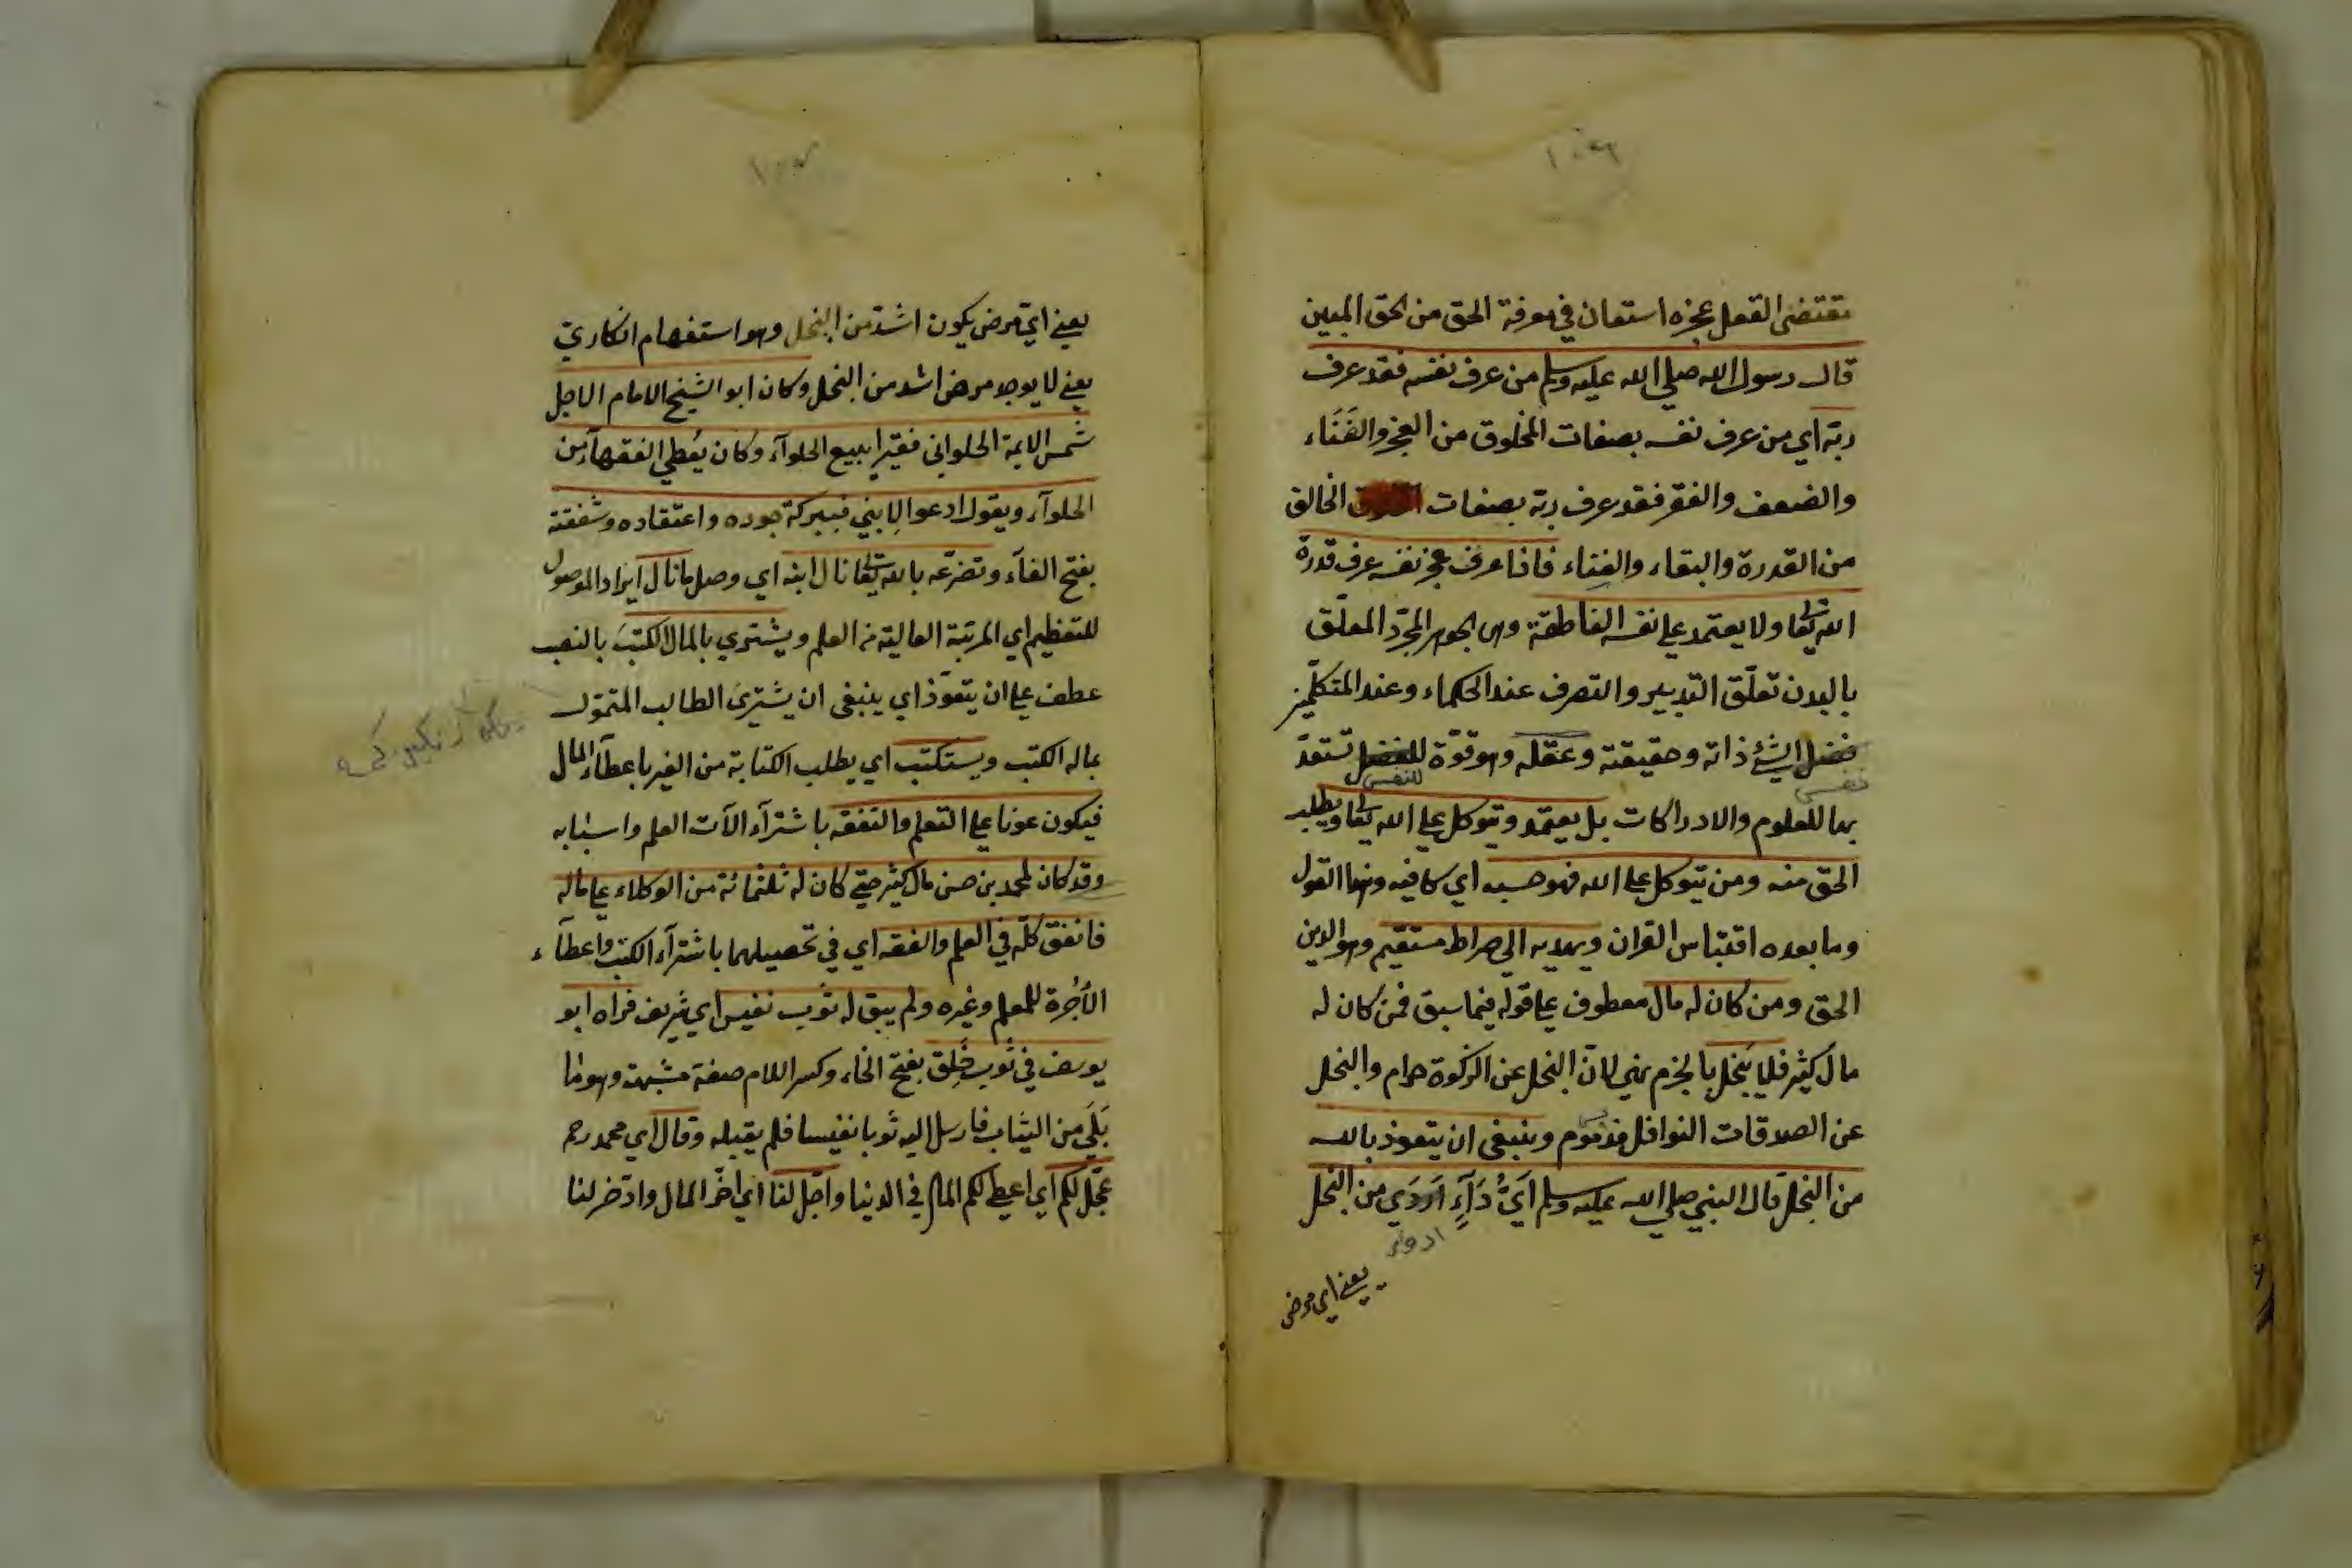 ١٠٢٦
يقتضى العقل عجزه استعان في معرفة الحق من الحق المبين
قال رسول الله صلى الله عليه وسلم من عرف نفسه فقد عرف
ربّه اي من عرف نفسه بصفات المخلوق من العجز والفَنَاء
والضعف والفقر فقد عرف ربّه بصفات الخالق
من القدرة والبقاء والغناء فاذا عرف عجز نفسه عرف قدرة
الله تعالى ولا يعتمد على نفسه الناطقة وهى الجوهر المجرّد المعلّق
بالبدن تعلّق التدبير والتصرف عند الحكماء وعند المتكلّمين
فضل الشئ ذاته وحقيقته وعقله وهو قوّة للفضل تستعدّ
نفس للنفس
بها للعلوم والادراكات بل يعتمد ويتوكل على الله تعالى ويطلب
الحق منه ومن يتوكل على الله فهو حسبه اي كافيه وهذا القول
وما بعده اقتباس القران ويهديه الى صراط مستقيم وهو الدين
الحق ومن كان له مال معطوف على قوله فيما سبق فمن كان له
مال كثير فلا يبخل بالجزم نهي لانّ البخل عن الزكوة حرام والبخل
عن الصدقات النوافل مذموم وينبغى ان يتعوذ بالله
من البخل قال النبي صلى الله عليه وسلم اَيُّ دَآءٍ اَردَي من البخل
ادوء
يعنى اي مرض
يعنى اي مرض يكون اشدّ من البخل وهو استفهام انكاريّ
يعنى لا يوجد مرض اشد من البخل وكان ابو الشيخ الامام الاجل
شمس الايمة الحلواني فقيرا يبيع الحلوآء وكان يُعطي الفقهآء من
الحلوآء ويقول ادعوا لِابني فببركة جوده واعتقاده وشفقته
بفتح الفآء وتضرّعه بالله تعالى نال ابنه اي وصل ما نال ايراد الموصول
للتعظيم اي المرتبة العالية من العلم ويشتري بالمال الكتبَ بالنصب
عطف على ان يتعوّذ اي ينبغى ان يشتريَ الطالب المتموّل
بماله الكتب ويستكتب اي يطلب الكتابة من الغير باعطآء المال
فيكون عونا على التعلم والتفقه باشترآء الآت العلم واسبابه
وقد كان لمحمد بن حسن مال كثير حتى كان له ثلثمائة من الوكلاء على ماله
فانفق كلّه في العلم والفقه اي في تحصيلهما باشترآء الكتب واعطآء
الأجْرة للمعلم وغيره ولم يبق له ثوب نفيس اي شريف فراه ابو
يوسف في ثوب خَلِق بفتح الخاء وكسر اللام صفة مشبهة وهو ما
بَلَى من الثياب فارسل اليه ثوبا نفيسا فلم يقبله وقال اي محمد رحم
عجّل لكم اي اعطى لكم المال في الدنيا واجّل لنا اي اخّر المال وادّخر لنا